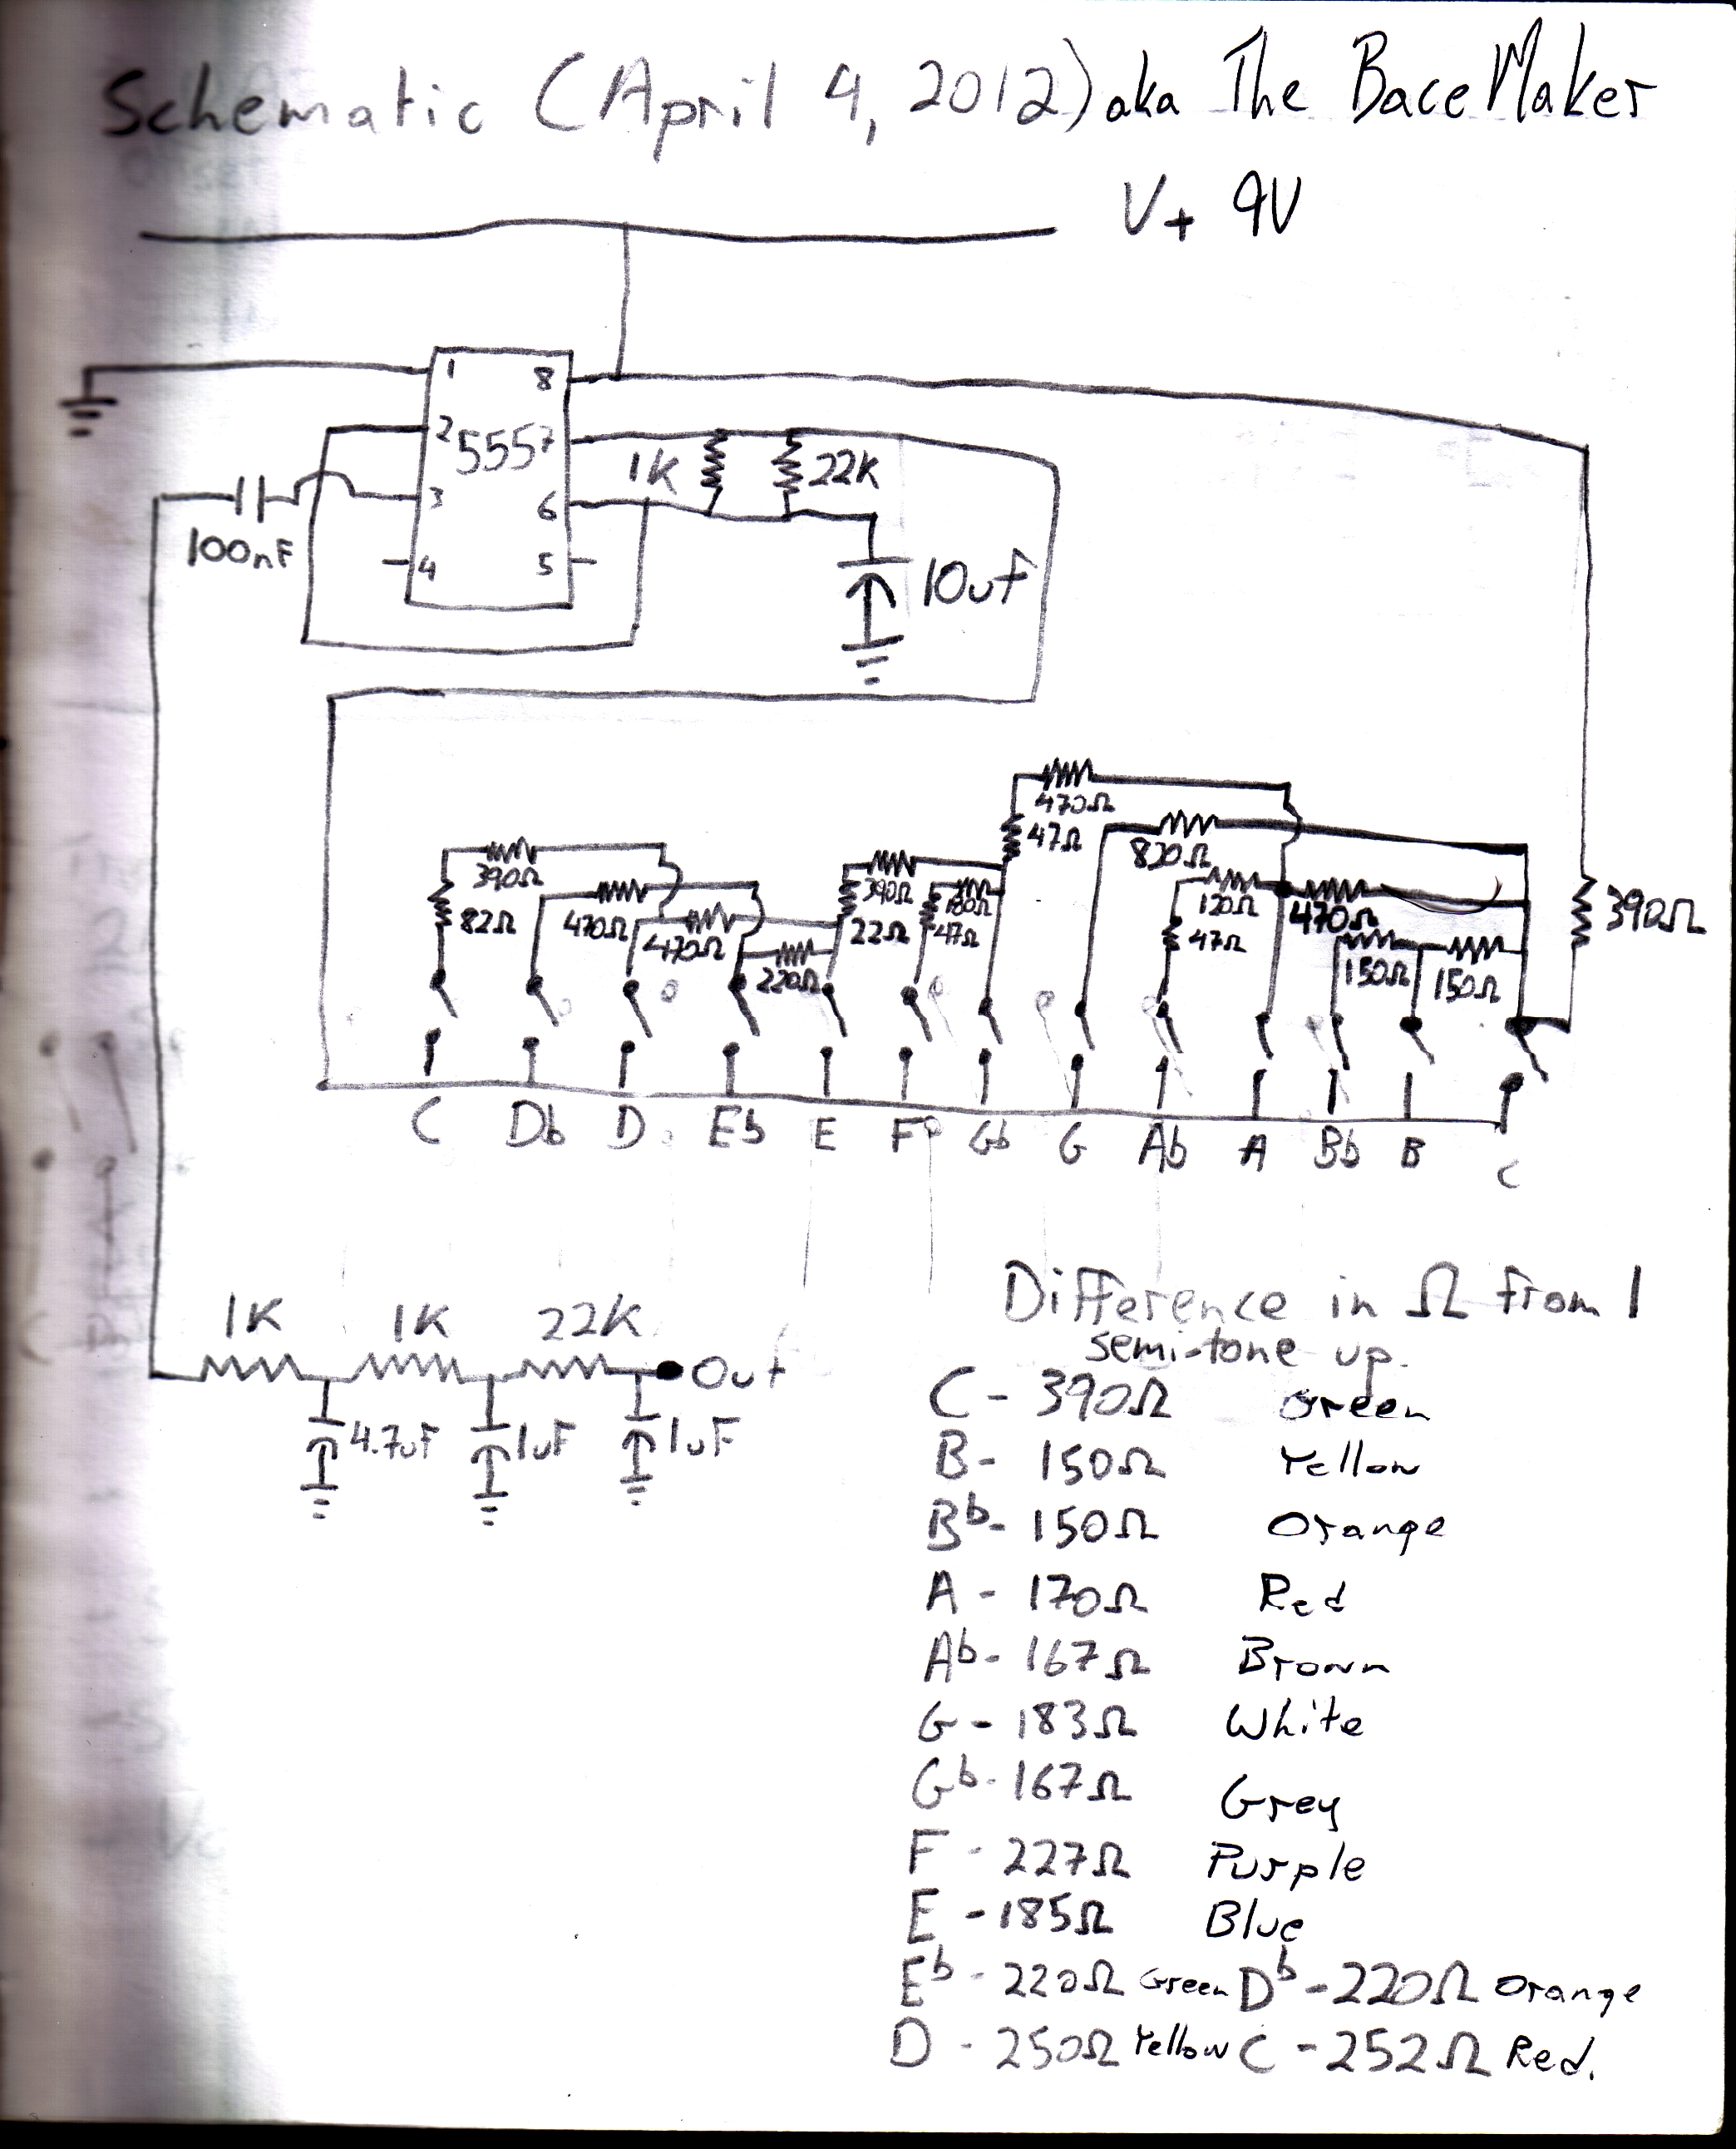 Schematic (April 4, 2012) aka The BaceMaker
V+ 9V
1 8
2 555 7
3 6
4 5
1K 22K
100nF
10uf
470Ω
47Ω
820Ω
390Ω
82Ω
470Ω
470Ω
220Ω
390Ω
22Ω
180Ω
47Ω
120Ω
47Ω
470Ω
150Ω 150Ω
390Ω
C Db D Eb E F Gb G Ab A Bb B C
1K 1K 22K
Out
4.7uF 1uF 1uF
Difference in Ω from 1
semi-tone up.
C - 390Ω Green
B - 150Ω Yellow
Bb - 150Ω Orange
A - 170Ω Red
Ab - 167Ω Brown
G - 183Ω White
Gb - 167Ω Grey
F - 227Ω Purple
E - 185Ω Blue
Eb - 220Ω Green Db - 220Ω Orange
D - 250Ω Yellow C - 252Ω Red.